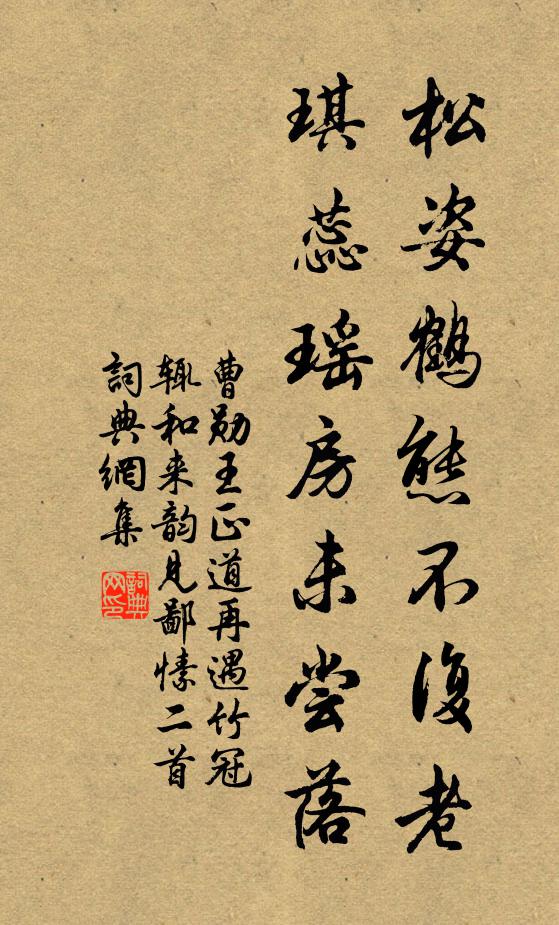 松姿鹤態不復老
琪蕊瑶房未尝落
曹勋王正道再遇竹冠
辄和来韵見鄙愫二首
詞典網集
詞典网印